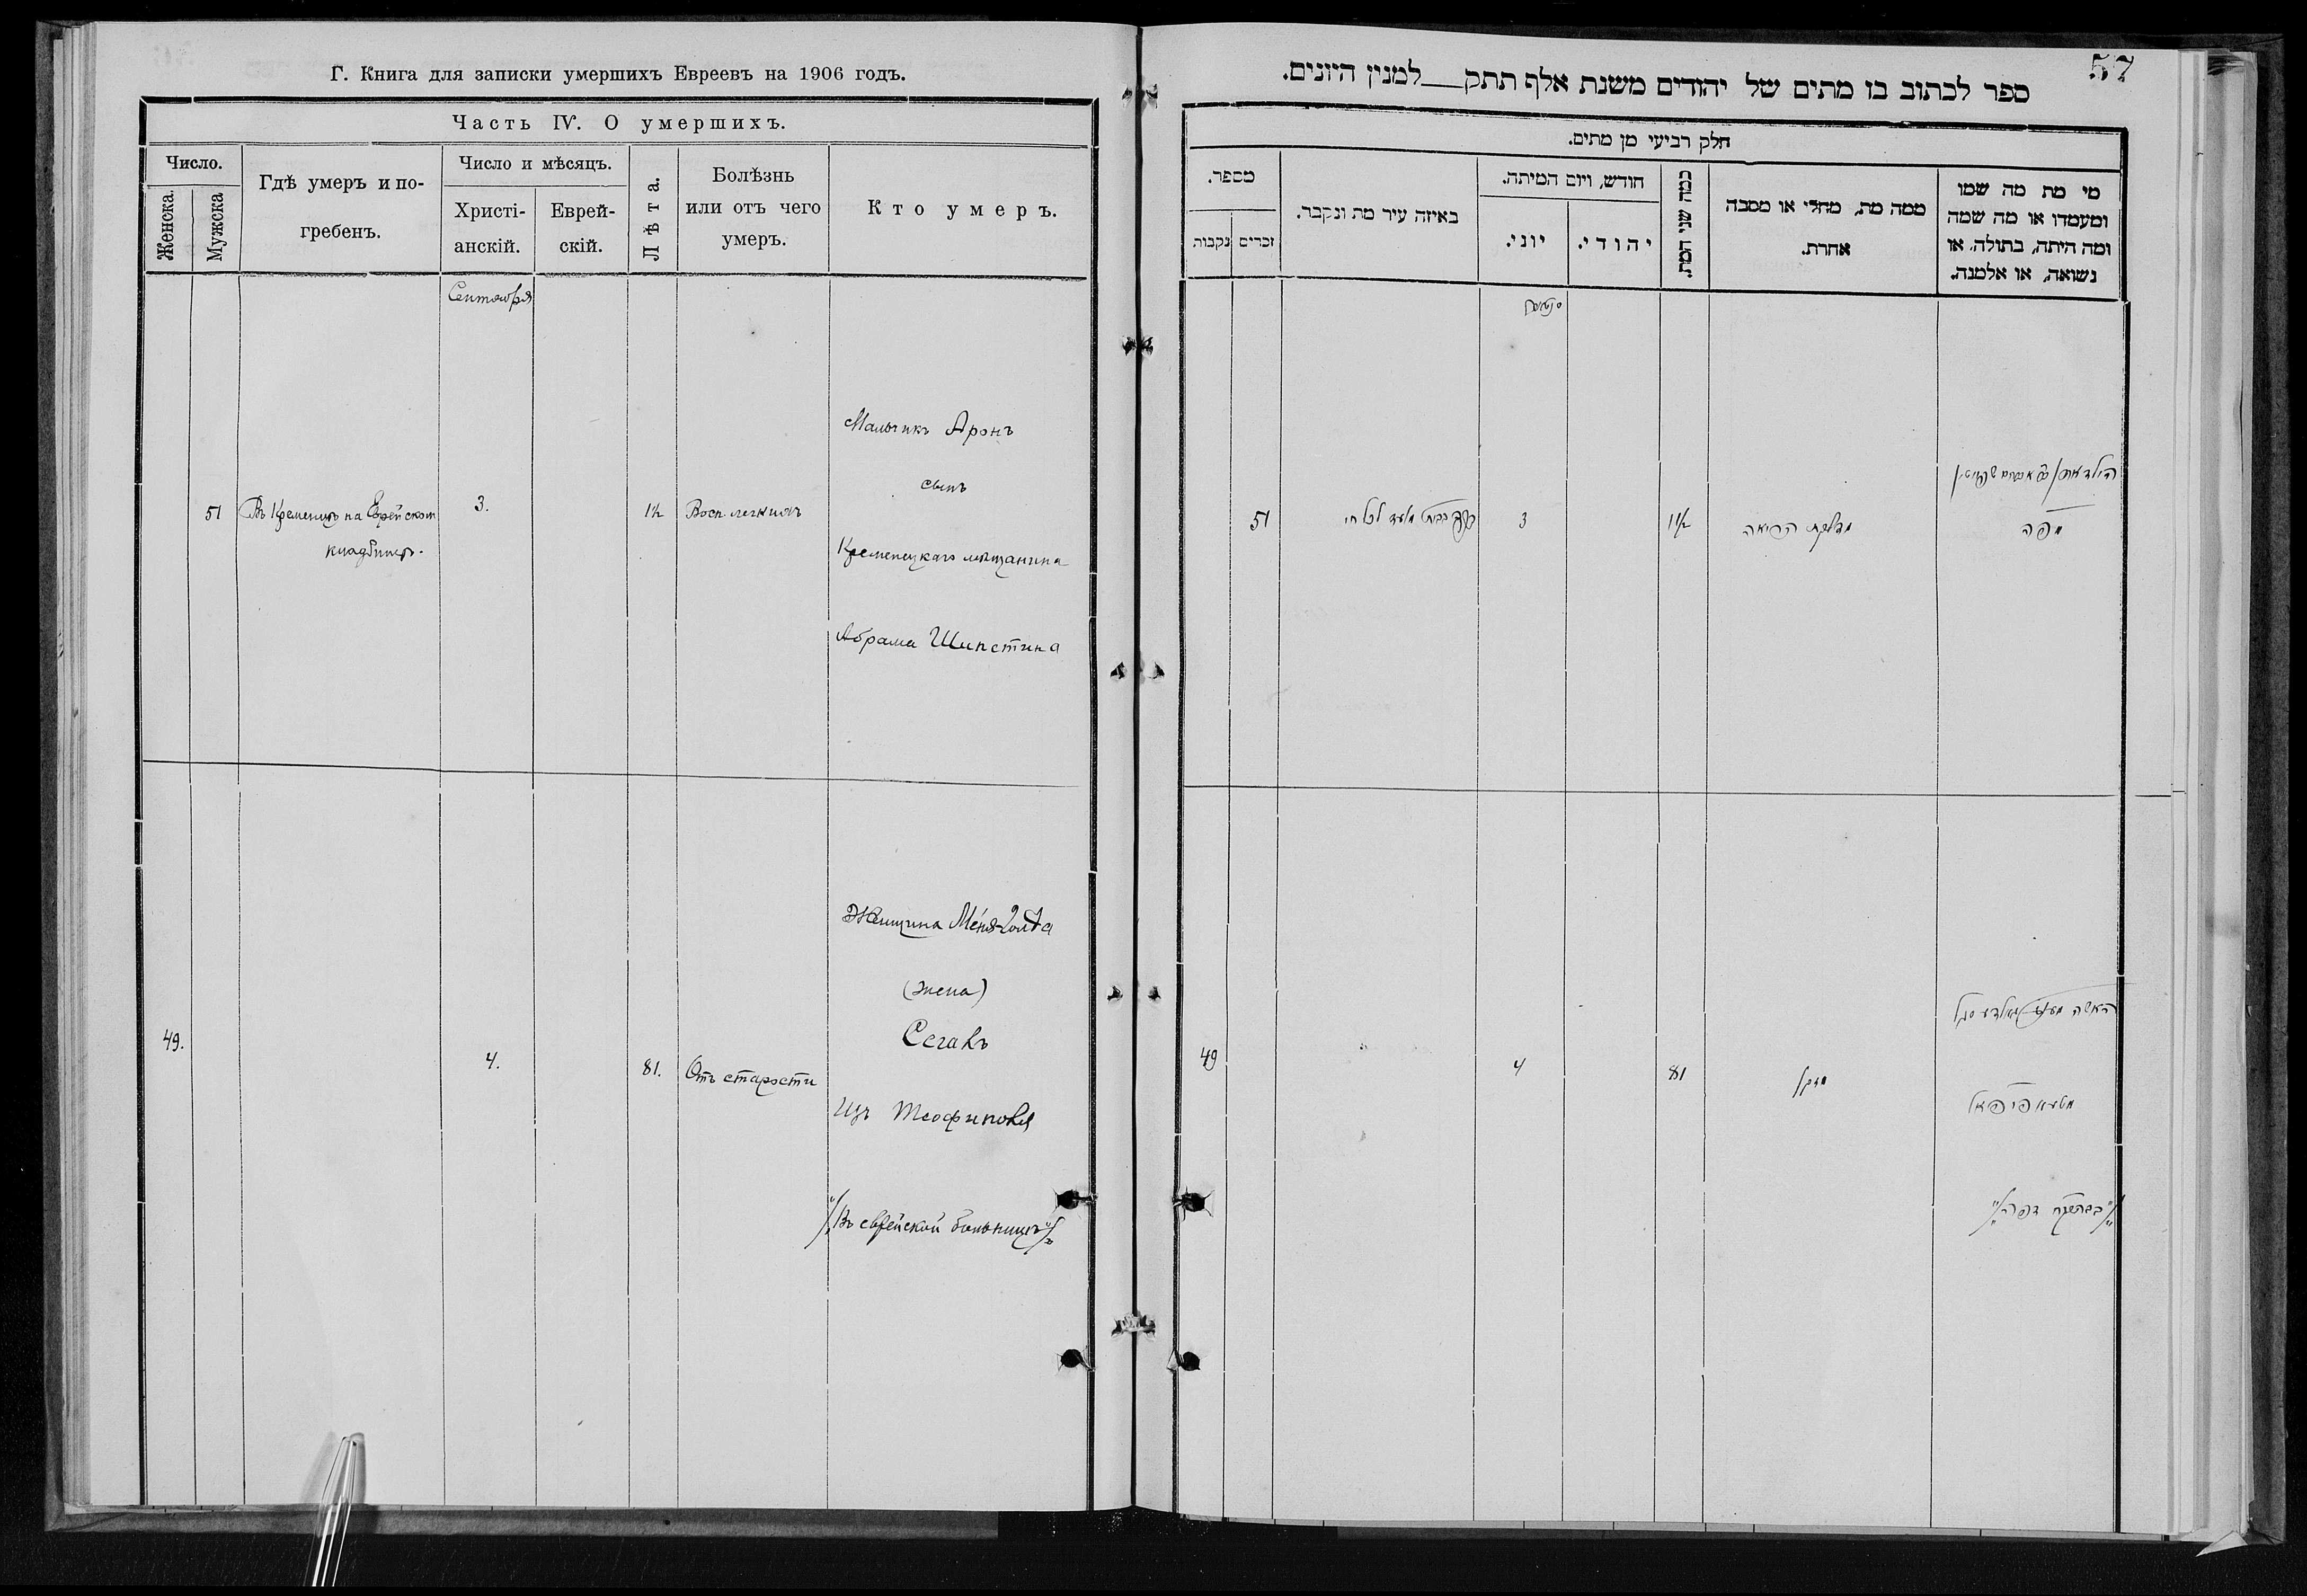 Г. Книга для записки умершихъ Евреевъ на 1906 годъ.
Часть IV. О умершихъ.
Число.
Женска.
Мужска
Гдѣ умеръ и по-
гребенъ.
Число и мѣсяцъ.
Христі-
анскій.
Еврей-
скій.
Лѣта.
Болѣзнь
или отъ чего
умеръ.
Кто умеръ.
Сентября
51
Въ Кременцѣ на Еврейском
кладбищѣ.
3.
1½
Восп легкихъ
Мальчикъ Аронъ
сынъ
Кременецкаго мѣщанина
Абрама Шипстина
49.
4.
81.
Отъ старости
Женщина Меня-Голда
(жена)
Сегалъ
Изъ Теофиполя
/"Въ еврейской больницѣ"/
57
ספר לכתוב בז מתים של יהודים משנת אלף תתק למנין היונים.
חלק רביעי מן מתים.
מספר.
נקבות
זכרים
באיזה עיר מת ונקבר.
חודש, ויום המיתה.
יוני.
יהודי.
כמה שני המת.
ממה מת, מחלי או מסבה
אחרת.
מי מת מה שמו
ומעמדו או מה שמה
ומה היתה, בתולה, או
נשואה, או אלמנה.
51
3
1½
מדלקת הריאה
מפה
49
4
81
זקן
האשה